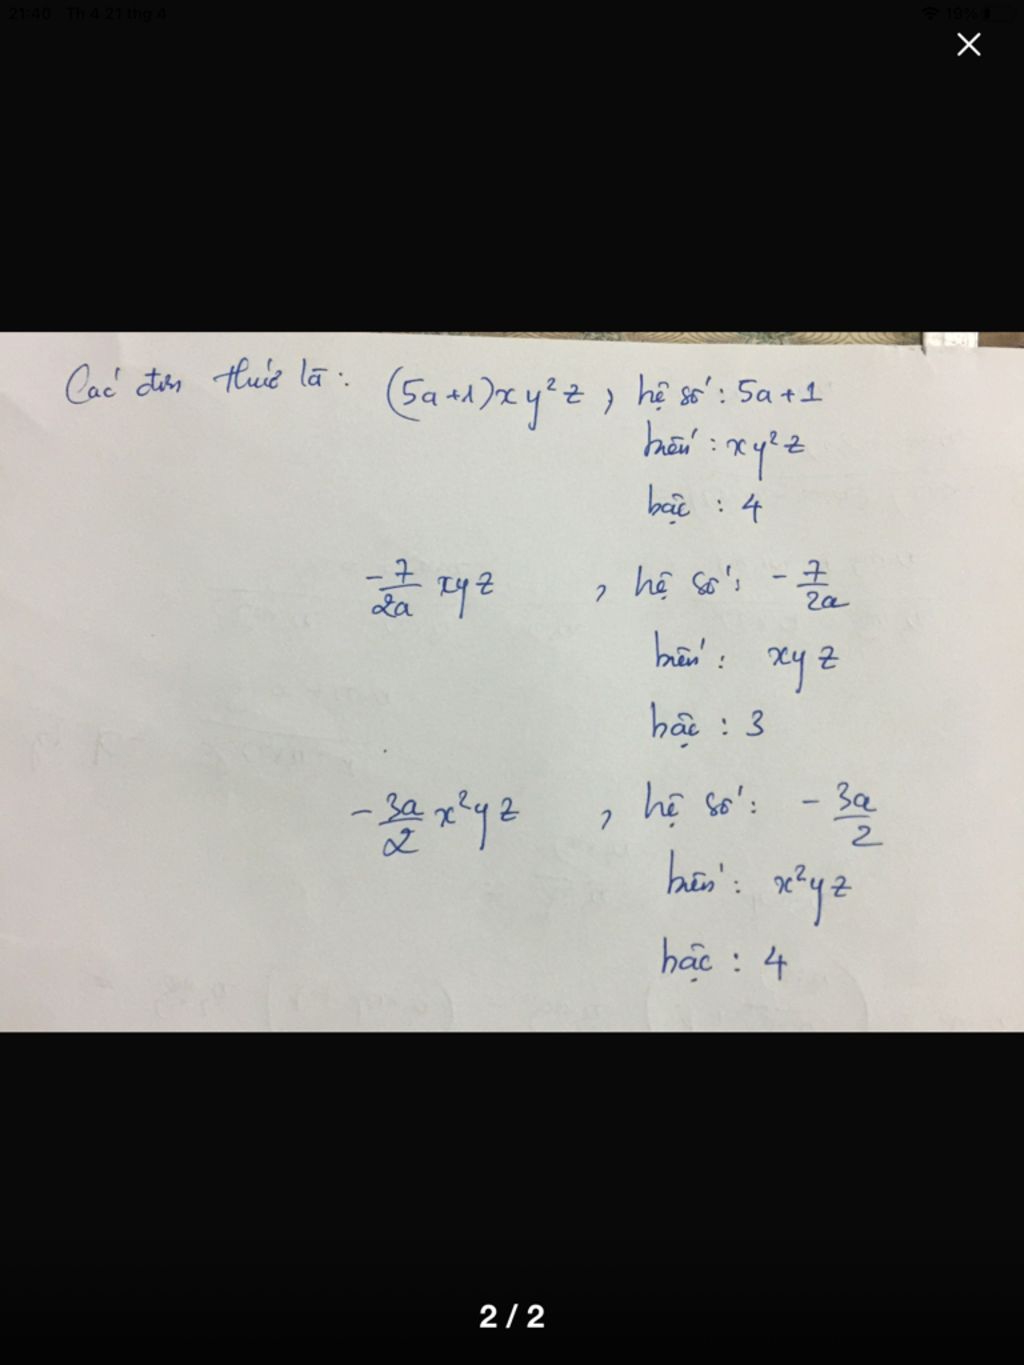 21:40 Th 4 21 thg 4 19%
Các đơn thức là: (5a+1)xy²z, hệ số: 5a+1
biến: xy²z
bậc: 4
-7/2a xyz, hệ số: -7/2a
biến: xyz
bậc: 3
-3a/2 x²yz, hệ số: -3a/2
biến: x²yz
bậc: 4
2 / 2